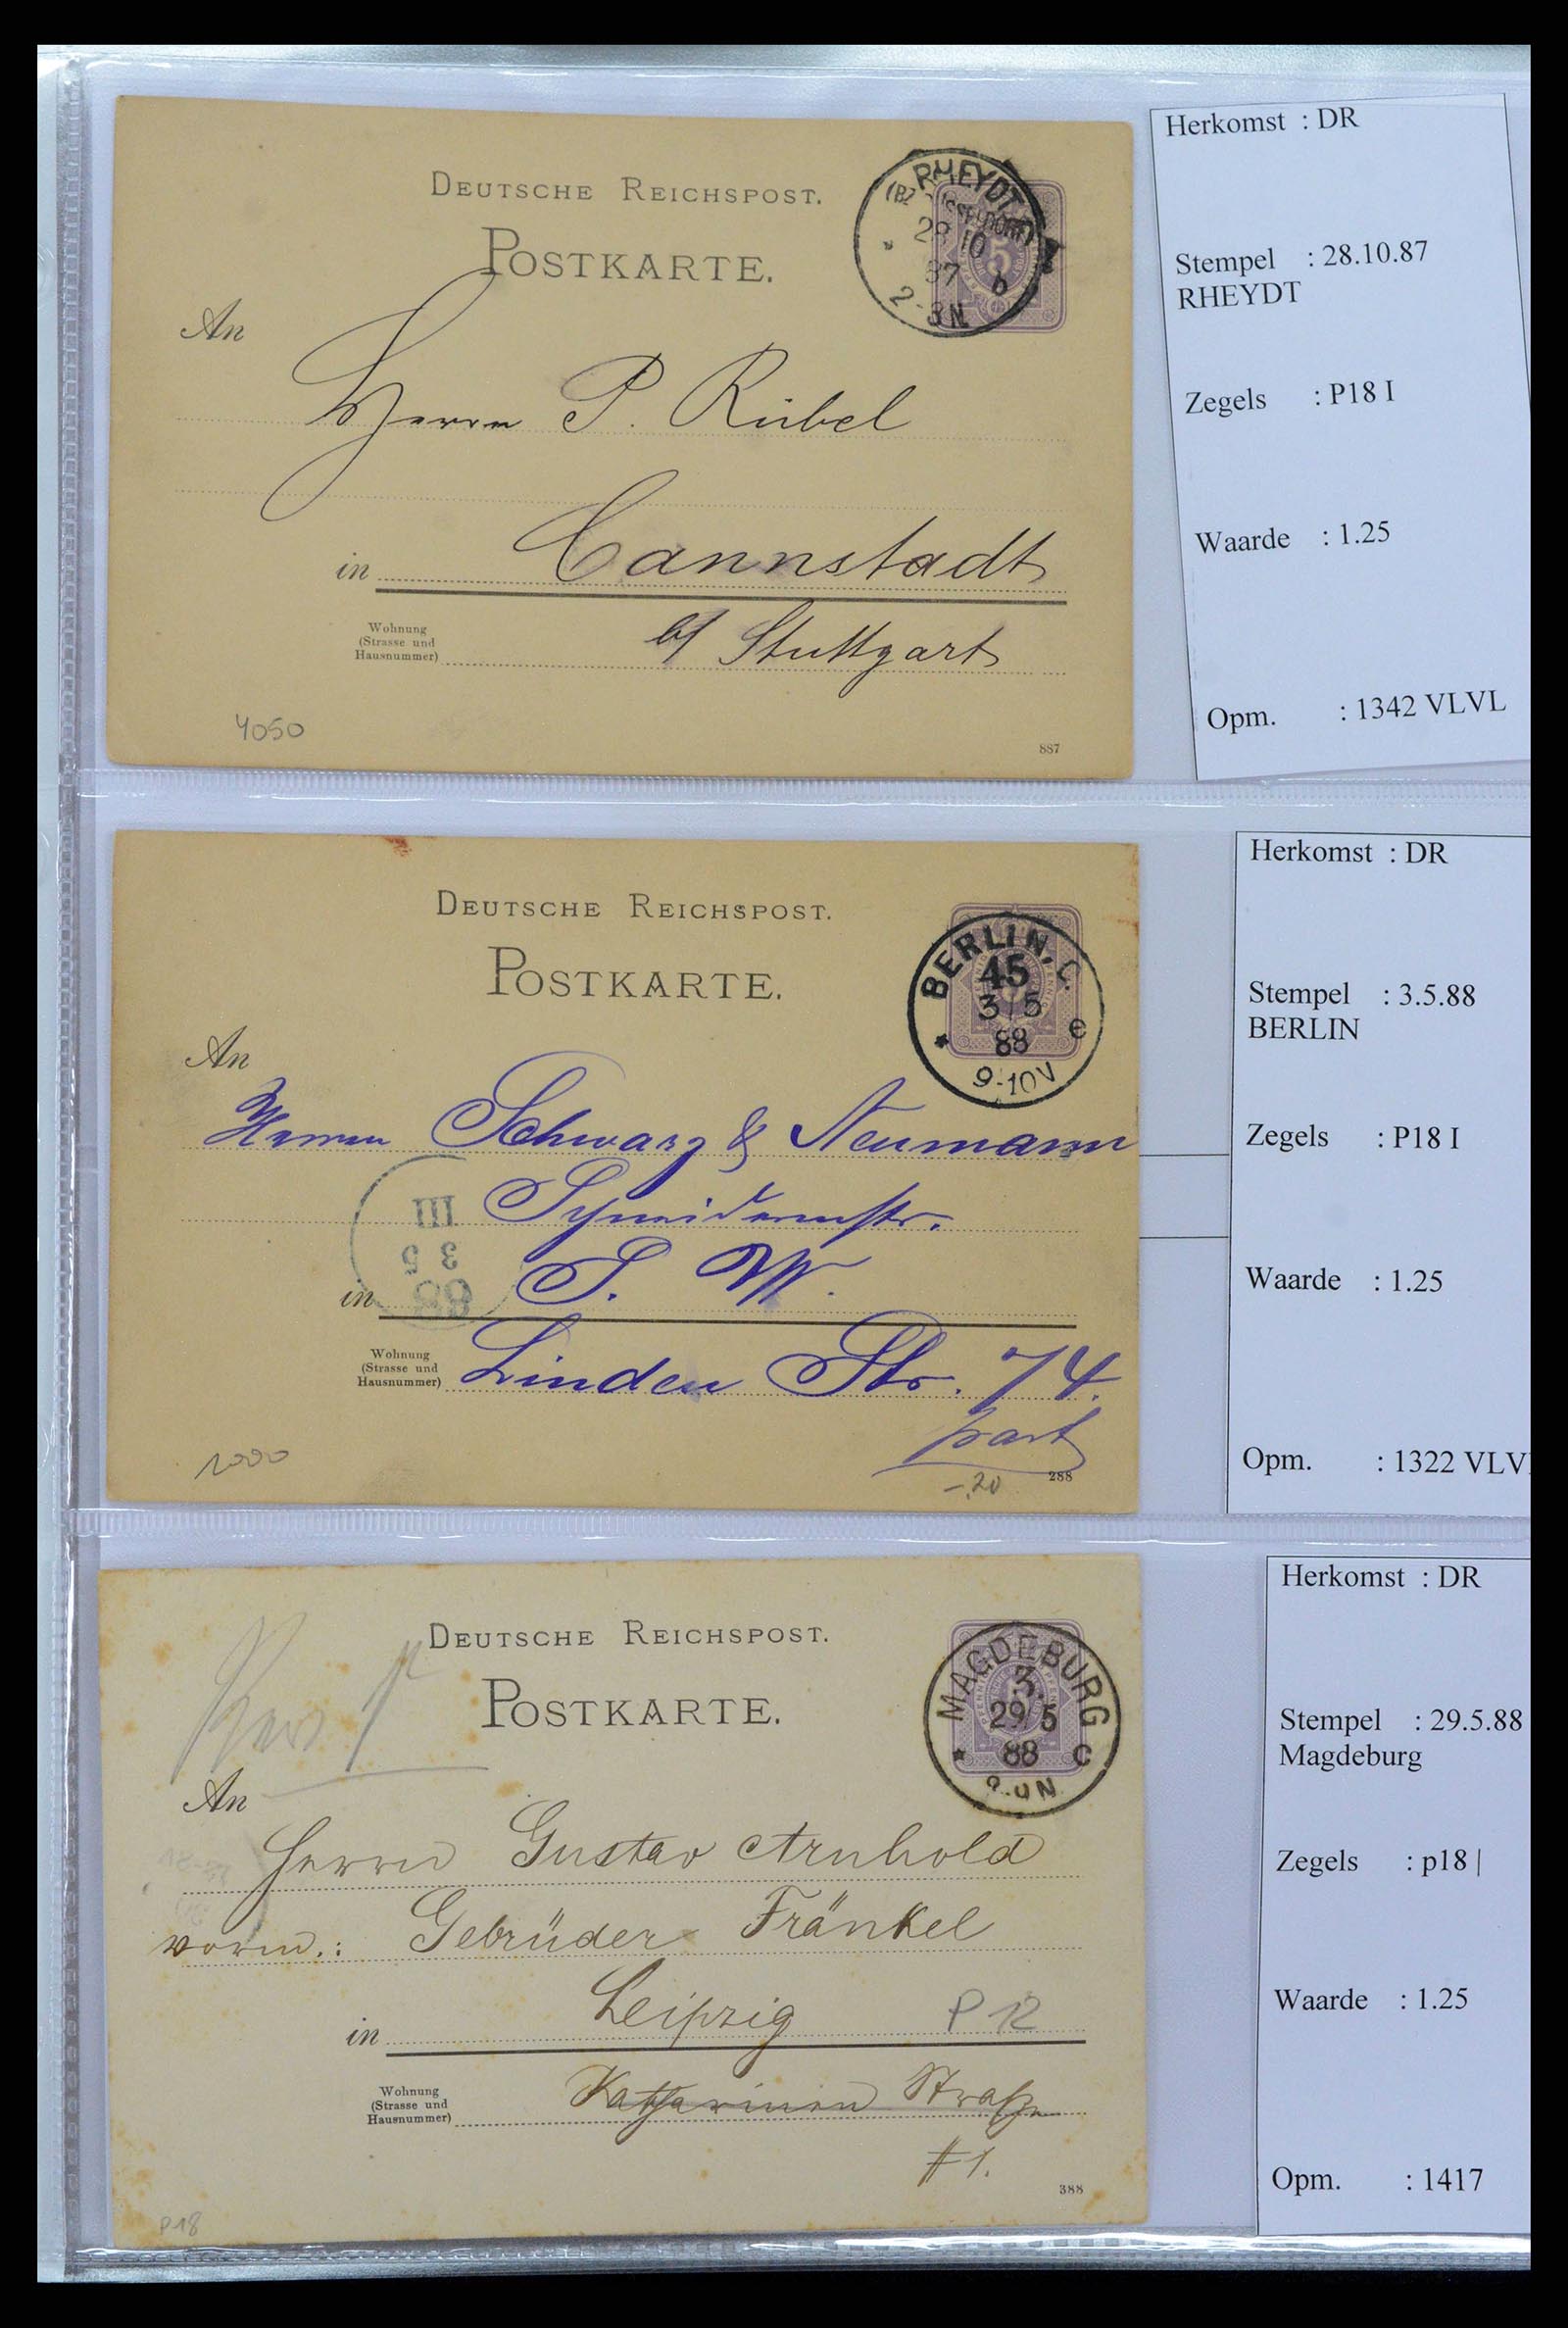 DEUTSCHE REICHSPOST.
POSTKARTE.
RHEYDT
28 10
87 b
2-3N
An
Herrn P. Rübel
in Cannstadt
Wohnung
(Strasse und
Hausnummer)
b/ Stuttgart
4050
887
Herkomst : DR
Stempel : 28.10.87
RHEYDT
Zegels : P18 I
Waarde : 1.25
Opm. : 1342 VLVL
DEUTSCHE REICHSPOST.
POSTKARTE.
BERLIN, C.
45
3 5
88 e
9-10V
An
Herren Schwarz & Neumann
III
3 5
88
in S. W.
Wohnung
(Strasse und
Hausnummer)
Linden Str. 74.
part
1000
-.20
288
Herkomst : DR
Stempel : 3.5.88
BERLIN
Zegels : P18 I
Waarde : 1.25
Opm. : 1322 VLV
DEUTSCHE REICHSPOST.
POSTKARTE.
MAGDEBURG
3.
29/5
88 C
An
Herrn Gustav Arnhold
vorm.: Gebrüder Fränkel
in Leipzig
P 12
Wohnung
(Strasse und
Hausnummer)
Katharinen Straße
#1.
P18
388
Herkomst : DR
Stempel : 29.5.88
Magdeburg
Zegels : p18 |
Waarde : 1.25
Opm. : 1417